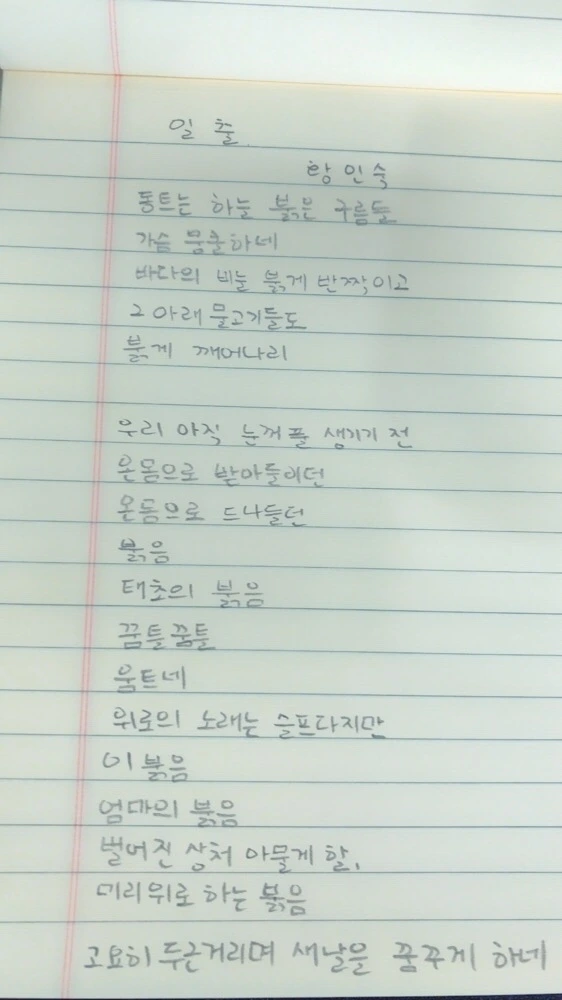 일출
황인숙
동트는 하늘 붉은 구름들
가슴 뭉클하네
바다의 비늘 붉게 반짝이고
그 아래 물고기들도
붉게 깨어나리
우리 아직 눈꺼풀 생기기 전
온몸으로 받아들이던
온몸으로 드나들던
붉음
태초의 붉음
꿈틀꿈틀
움트네
위로의 노래는 슬프다지만
이 붉음
엄마의 붉음
벌어진 상처 아물게 할,
미리 위로 하는 붉음
고요히 두근거리며 새날을 꿈꾸게 하네